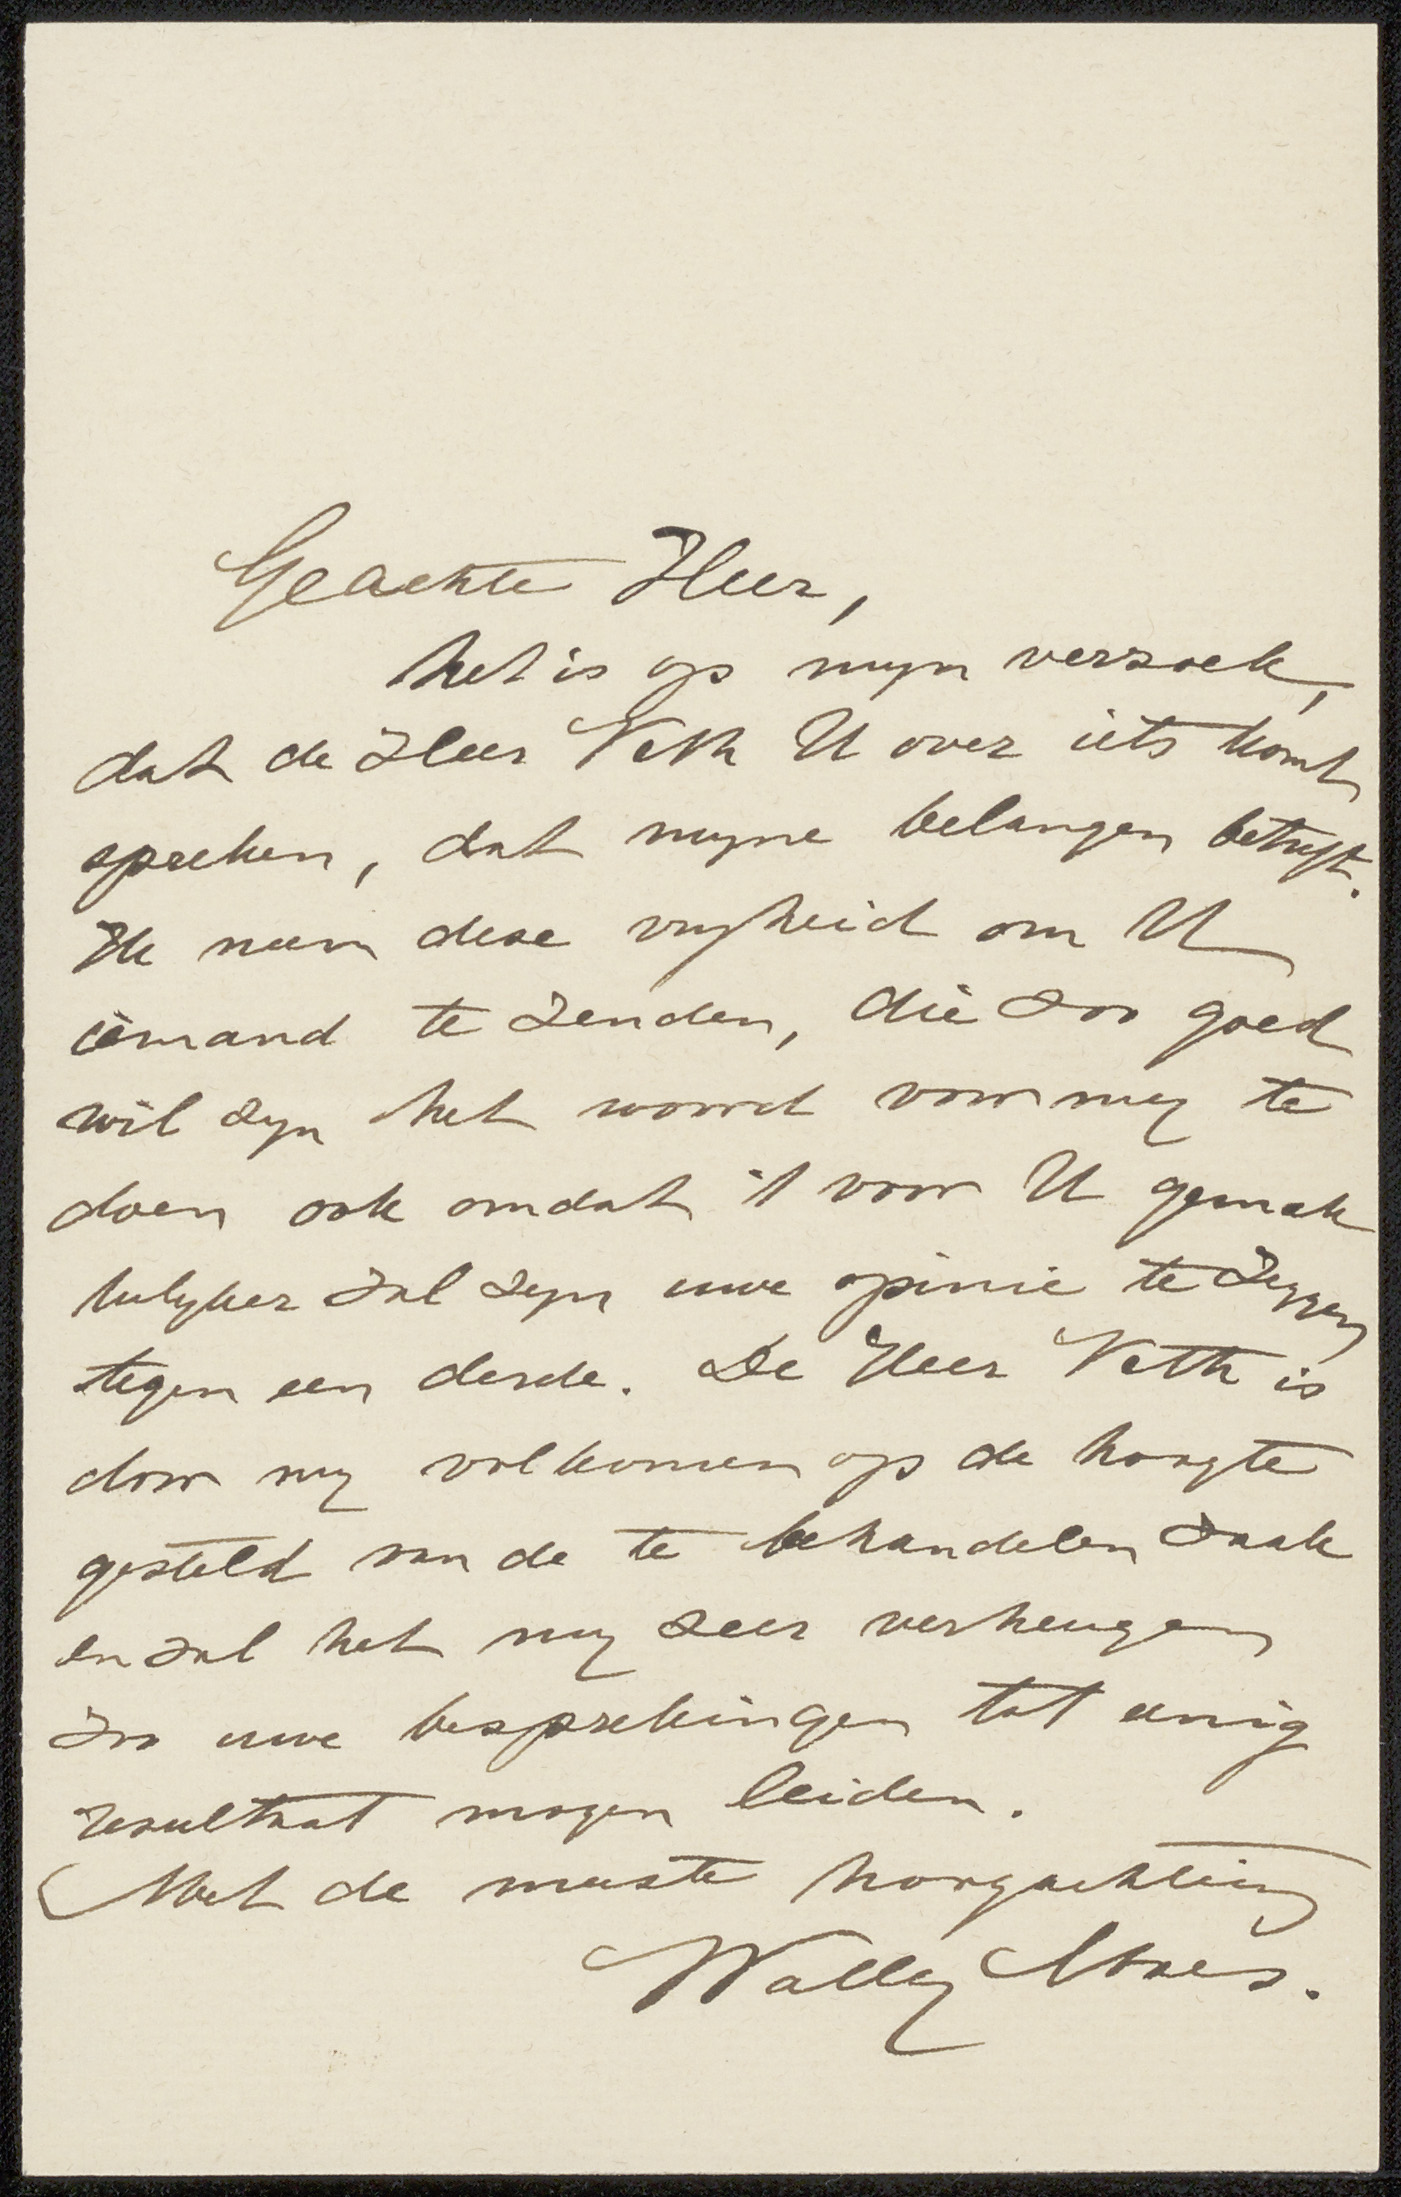 Geachte Heer,
het is op myn verzoek,
dat de Heer Veth U over iets komt
spreken, dat myne belangen betryft.
Ik neem deze vryheid om U
iemand te zenden, die zoo goed
wil zyn het woord voor my te
doen ook omdat 't voor U gemak
kelyker zal zyn uwe opinie te zeggen
tegen een derde. De Heer Veth is
door my volkomen op de hoogte
gesteld van de te behandelen zaak
en zal het my zeer verheugen
zoo uwe besprekingen tot eenig
resultaat mogen leiden.
Met de meeste hoogachting
Wally Moes.